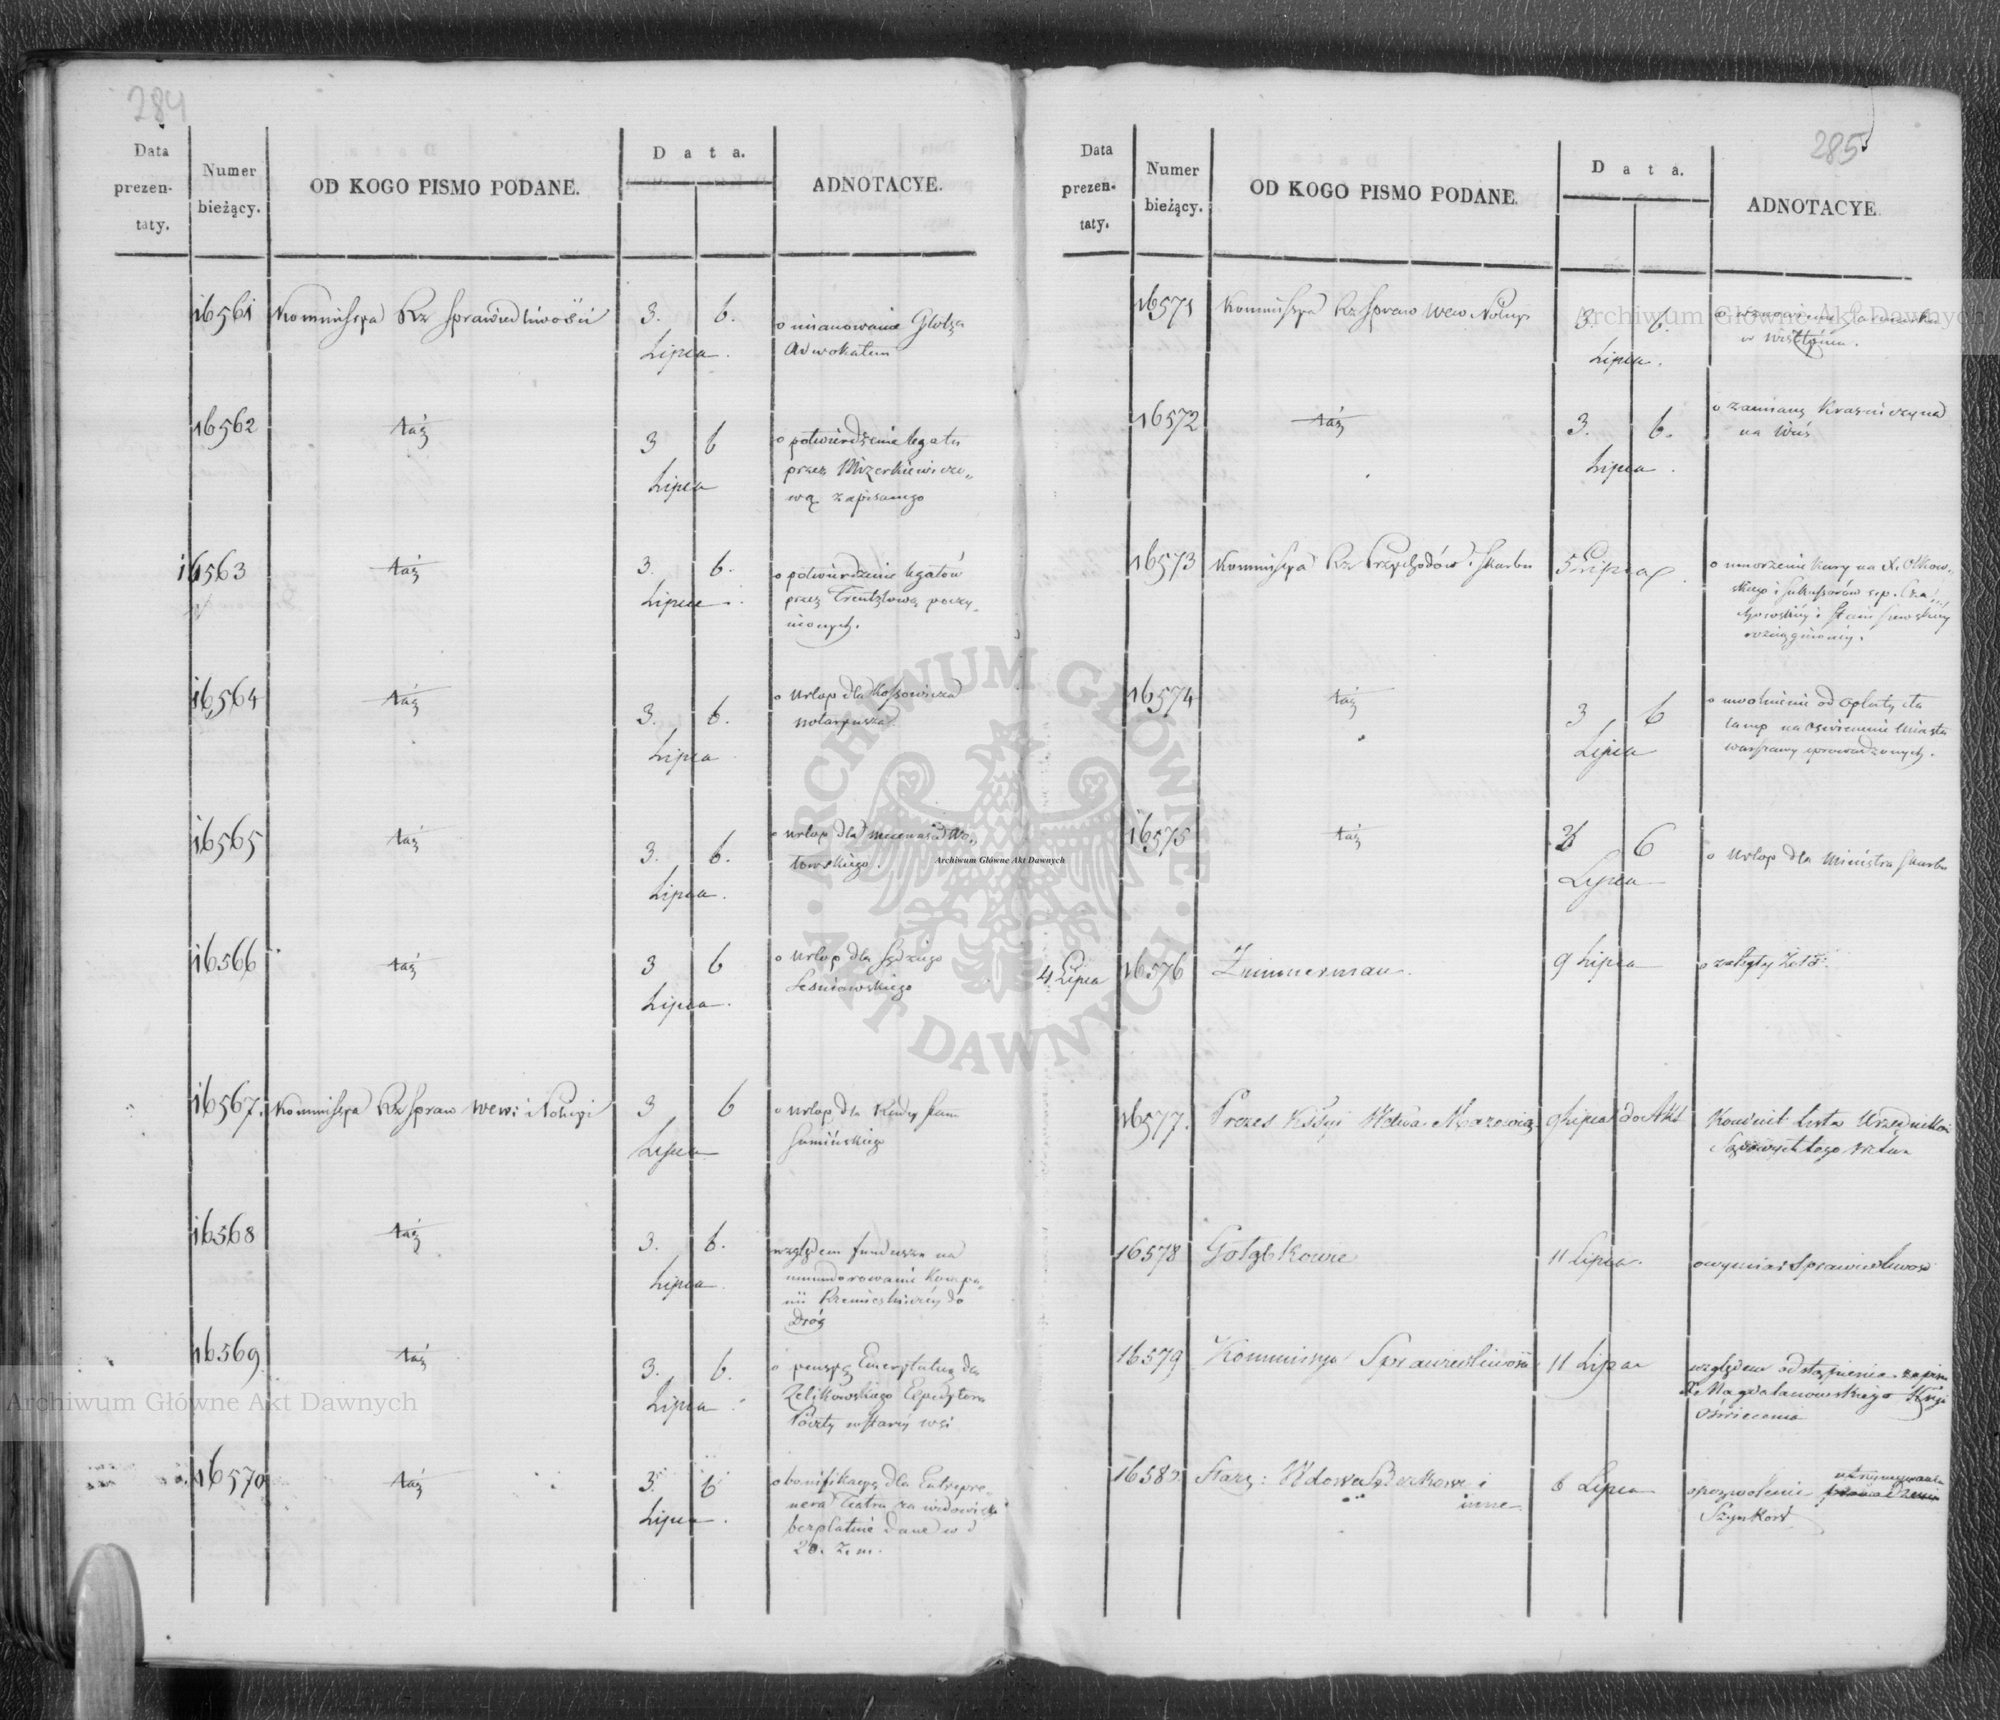 284
Data prezentaty.
Numer bieżący.
OD KOGO PISMO PODANE.
Data.
ADNOTACYE.
16561 Kommissya Rz Sprawiedliwości 3. 6. Lipca.
o mianowanie Glotza
Adwokatem
16562 taż 3 6 Lipca
o potwierdzenie legatu
przez Mizerkiewiczo„
wą zapisanego
16563 taż 3. 6. Lipca.
o potwierdzenie legatów
przez Trentzlową poczy„
nionych.
16564 taż 3. 6. Lipca.
o urlop dla Kossowicza
notaryusza
16565 taż 3. 6. Lipca.
o urlop dla mecenasa Wo„
łowskiego.
16566 taż 3 6 Lipca.
o urlop dla Sędziego
Leśniawskiego
16567. Kommissya Rz Spraw Wew: i Policyi 3 6 Lipca
o urlop dla Radcy Stanu
Sumińskiego
16568 taż 3. 6. Lipca.
względem funduszu na
umundorowanie Kompa„
nii Rzemieślniczéy do
Dróg
16569 taż 3. 6. Lipca.
o pensyą Emerytalną dla
Zelikowskiego Expedytora
Poczty w starej wsi
16570 taż 3. 6 Lipca.
o bonifikacyą dla Entrepre„
nera Teatru za widowisko
bezpłatnie dane w d
20. z. m.
285
Data prezentaty.
Numer bieżący.
OD KOGO PISMO PODANE.
Data.
ADNOTACYE.
16571 Kommissya Rz Spraw Wew Policyi 3. 6. Lipca.
o wznowienie Jarmarku
w
16572 taż 3. 6. Lipca.
o zamianę Kraśniczyna
na Wieś
16573 Kommissya Rz Przychodów i Skarbu 5 Lipca
o umorzenie kary na X. Olkow„
skiego i Sukcessorów s.p.
i
rozciągnioney.
16574 taż 3 6 Lipca
o uwolnienie od opłaty cła
lamp na oświecenie Miasta
Warszawy sprowadzonych.
16575 taż 6 Lipca
o urlop dla Ministra Skarbu
4 Lipca 16576 Zimmerman. 9 Lipca
o zaległy żołd.
16577. Prezes Kssyi Wdztwa Mazowiec 9 Lipca do Akt
Listę Urzędników
tego
16578 Gołąbkowie 11 Lipca.
o wymiar Sprawiedliwości
16579 Kommissya Sprawiedliwości 11 Lipca
względem odstąpienia zapisu
X. Magdalanowskiego
Oświecenia
16580 Starz: Wdowa i
inne 6 Lipca
o pozwolenie utrzymywania
Szynków
Archiwum Główne Akt Dawnych
Archiwum Główne Akt Dawnych
Archiwum Główne Akt Dawnych
ARCHIWUM GŁÓWNE · AKT DAWNYCH ·